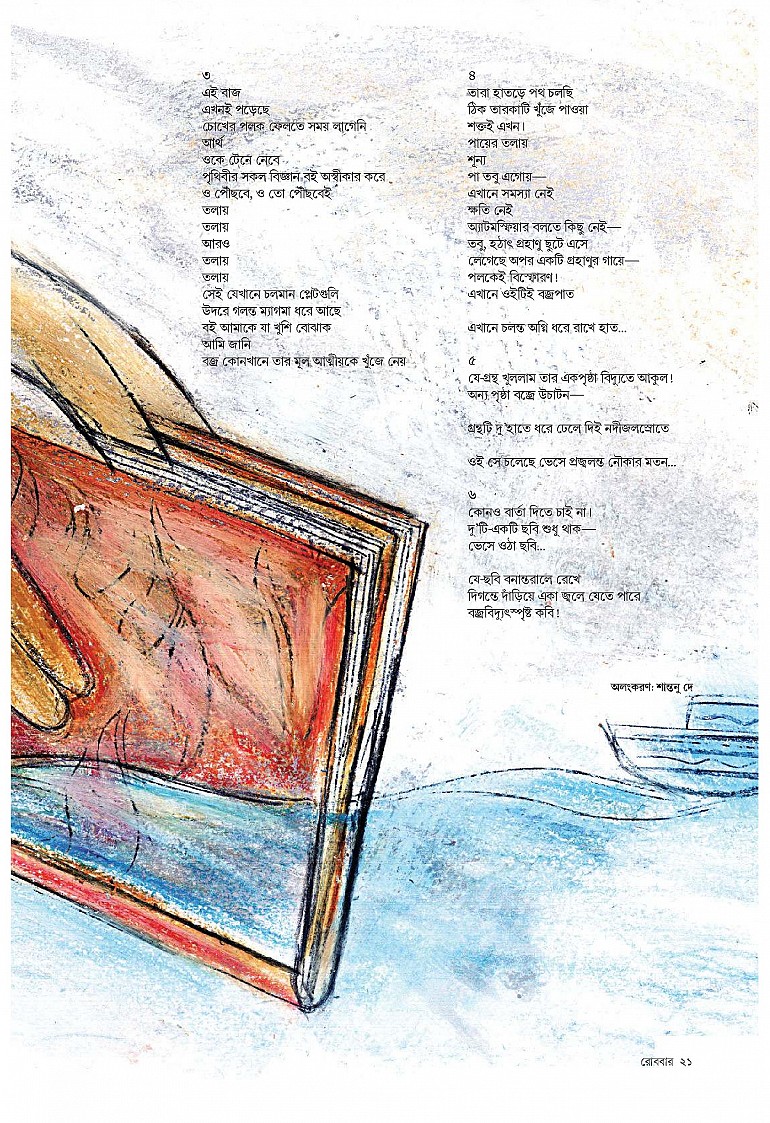 ৩
এই বাজ
এখনই পড়েছে
চোখের পলক ফেলতে সময় লাগেনি
আর্থ
ওকে টেনে নেবে
পৃথিবীর সকল বিজ্ঞান বই অস্বীকার করে
ও পৌঁছবে, ও তো পৌঁছবেই
তলায়
তলায়
আরও
তলায়
তলায়
সেই যেখানে চলমান প্লেটগুলি
উদরে গলন্ত ম্যাগমা ধরে আছে
বই আমাকে যা খুশি বোঝাক
আমি জানি
বজ্র কোনখানে তার মূল আত্মীয়কে খুঁজে নেয়
৪
তারা হাতড়ে পথ চলছি
ঠিক তারকাটি খুঁজে পাওয়া
শক্তই এখন।
পায়ের তলায়
শূন্য
পা তবু এগোয়—
এখানে সমস্যা নেই
ক্ষতি নেই
অ্যাটমস্ফিয়ার বলতে কিছু নেই—
তবু, হঠাৎ গ্রহাণু ছুটে এসে
লেগেছে অপর একটি গ্রহাণুর গায়ে—
পলকেই বিস্ফোরণ!
এখানে ওইটিই বজ্রপাত
এখানে চলন্ত অগ্নি ধরে রাখে হাত...
৫
যে-গ্রন্থ খুললাম তার একপৃষ্ঠা বিদ্যুতে আকুল!
অন্য পৃষ্ঠা বজ্রে উচাটন—
গ্রন্থটি দু'হাতে ধরে ঢেলে দিই নদীজলস্রোতে
ওই সে চলেছে ভেসে প্রজ্বলন্ত নৌকার মতন...
৬
কোনও বার্তা দিতে চাই না।
দু'টি-একটি ছবি শুধু থাক—
ভেসে ওঠা ছবি...
যে-ছবি বনান্তরালে রেখে
দিগন্তে দাঁড়িয়ে একা জ্বলে যেতে পারে
বজ্রবিদ্যুৎস্পৃষ্ট কবি!
অলংকরণ: শান্তনু দে
রোববার ২১